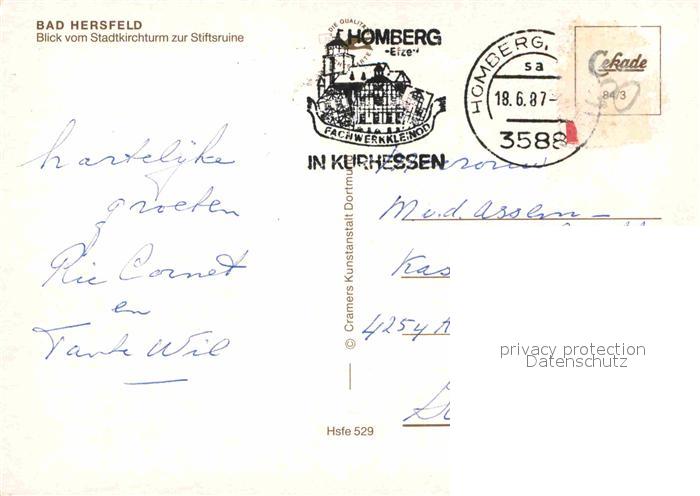 BAD HERSFELD
Blick vom Stadtkirchturm zur Stiftsruine
DIE QUALITÄT
HOMBERG
-Efze-
FACHWERKKLEINOD
IN KURHESSEN
HOMBERG,
sa
18.6.87-
3588
Cekade
84/3
hartelijke
groeten
Ric Cornet
en
Tante Wil
© Cramers Kunstanstalt Dortmund
Mevrouw
M.v.d. Assem-
Kas
4254
Hsfe 529
privacy protection
Datenschutz